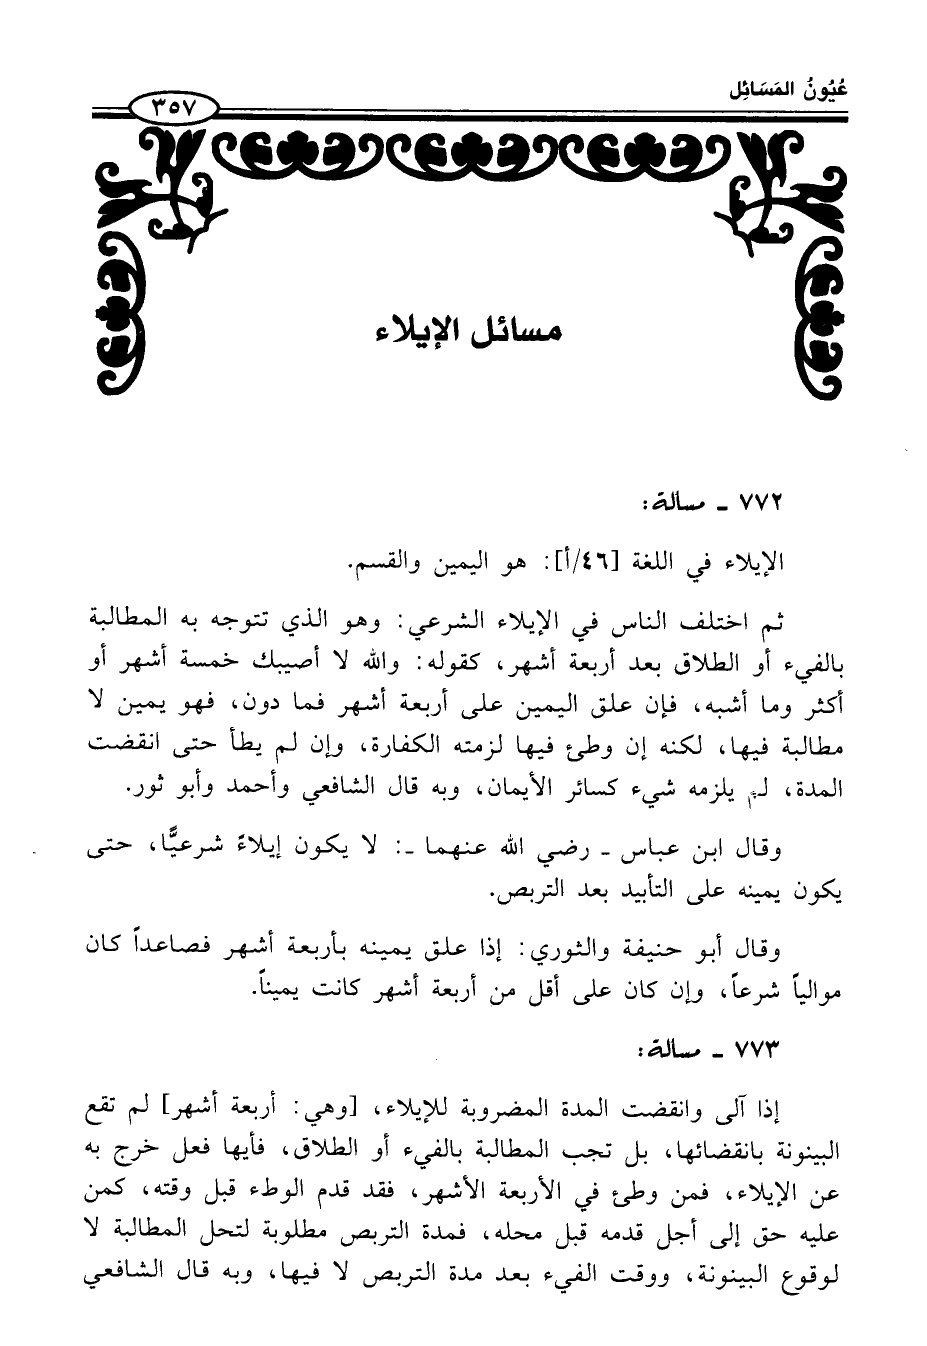 عُيُونُ المَسَائِل
٣٥٧
مسائل الإيلاء
٧٧٢ ـ مسالة:
الإيلاء في اللغة [٤٦/أ]: هو اليمين والقسم.
ثم اختلف الناس في الإيلاء الشرعي: وهو الذي تتوجه به المطالبة
بالفيء أو الطلاق بعد أربعة أشهر، كقوله: والله لا أصيبك خمسة أشهر أو
أكثر وما أشبه، فإن علق اليمين على أربعة أشهر فما دون، فهو يمين لا
مطالبة فيها، لكنه إن وطئ فيها لزمته الكفارة، وإن لم يطأ حتى انقضت
المدة، لم يلزمه شيء كسائر الأيمان، وبه قال الشافعي وأحمد وأبو ثور.
وقال ابن عباس ـ رضي الله عنهما ـ: لا يكون إيلاءً شرعيًّا، حتى
يكون يمينه على التأبيد بعد التربص.
وقال أبو حنيفة والثوري: إذا علق يمينه بأربعة أشهر فصاعداً كان
موالياً شرعاً، وإن كان على أقل من أربعة أشهر كانت يميناً.
٧٧٣ ـ مسالة:
إذا آلى وانقضت المدة المضروبة للإيلاء، [وهي: أربعة أشهر] لم تقع
البينونة بانقضائها، بل تجب المطالبة بالفيء أو الطلاق، فأيها فعل خرج به
عن الإيلاء، فمن وطئ في الأربعة الأشهر، فقد قدم الوطء قبل وقته، كمن
عليه حق إلى أجل قدمه قبل محله، فمدة التربص مطلوبة لتحل المطالبة لا
لوقوع البينونة، ووقت الفيء بعد مدة التربص لا فيها، وبه قال الشافعي